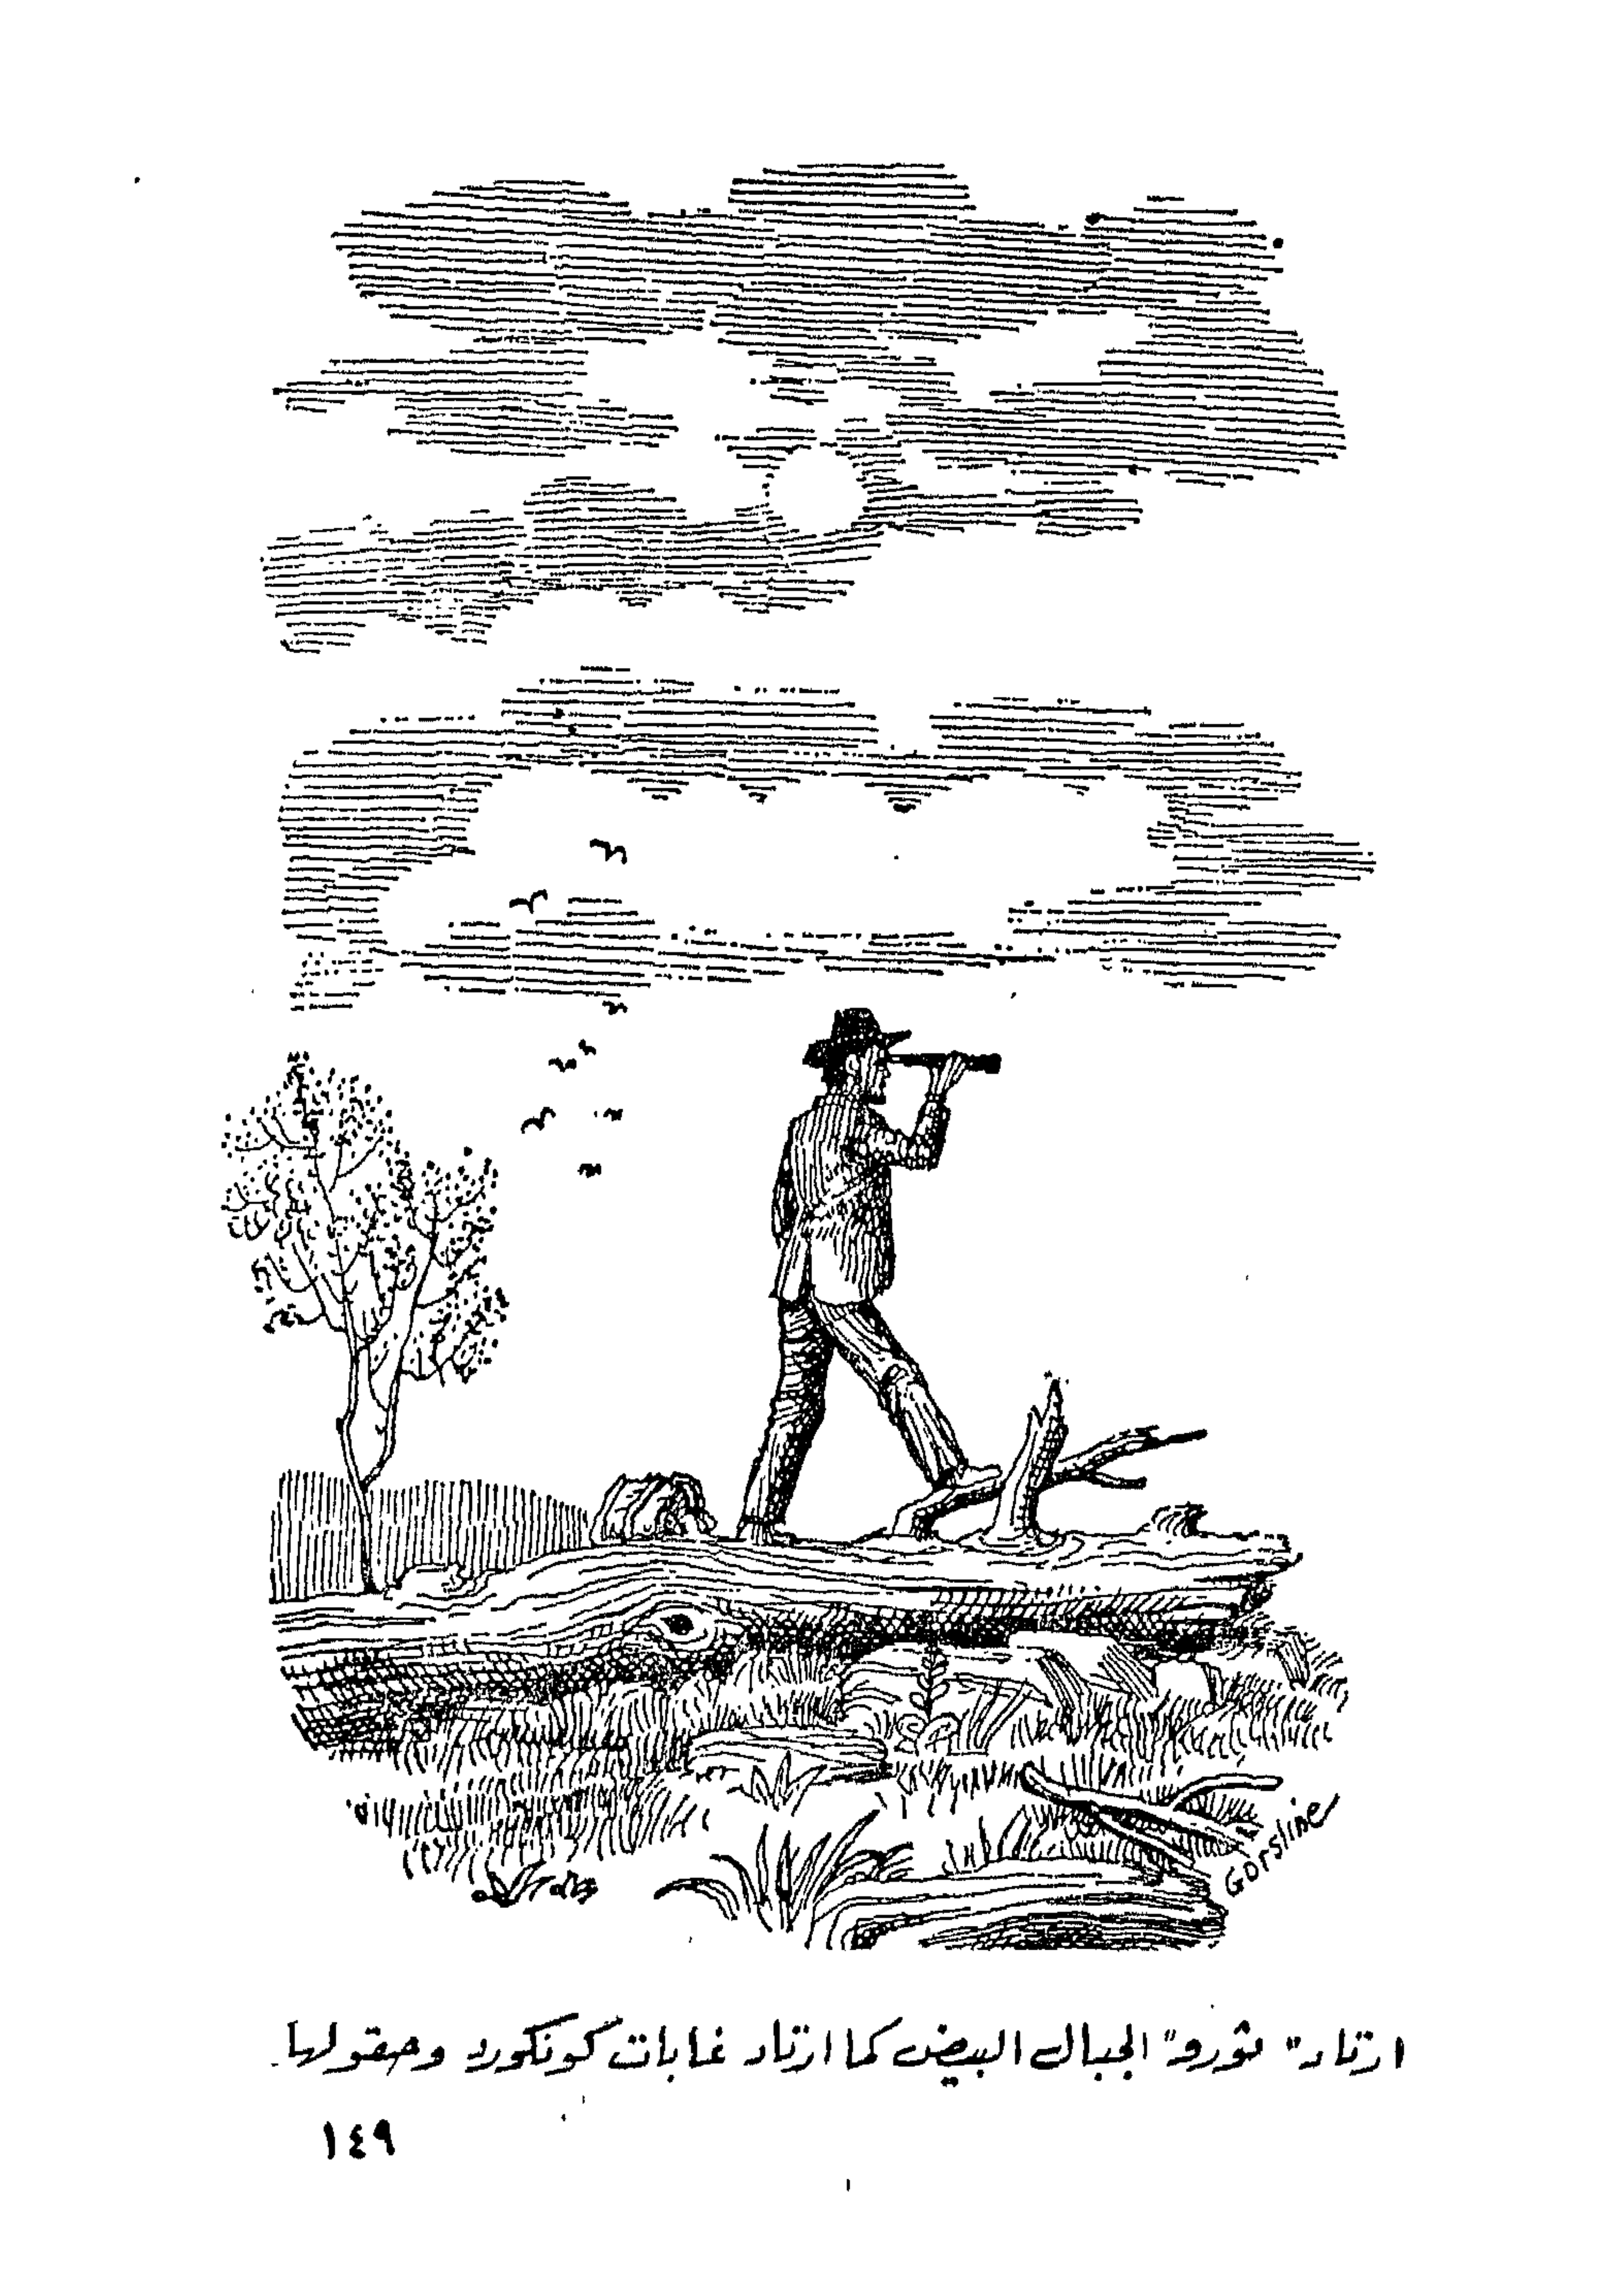 Gorsline
ارتاد "ثورو" الجبال البيض كما ارتاد غابات كونكورد وحقولها.
١٤٩